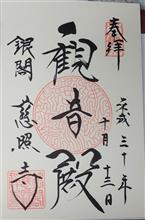 奉拝
平成三十年
十月十三日
観音殿
銀閣
慈照寺